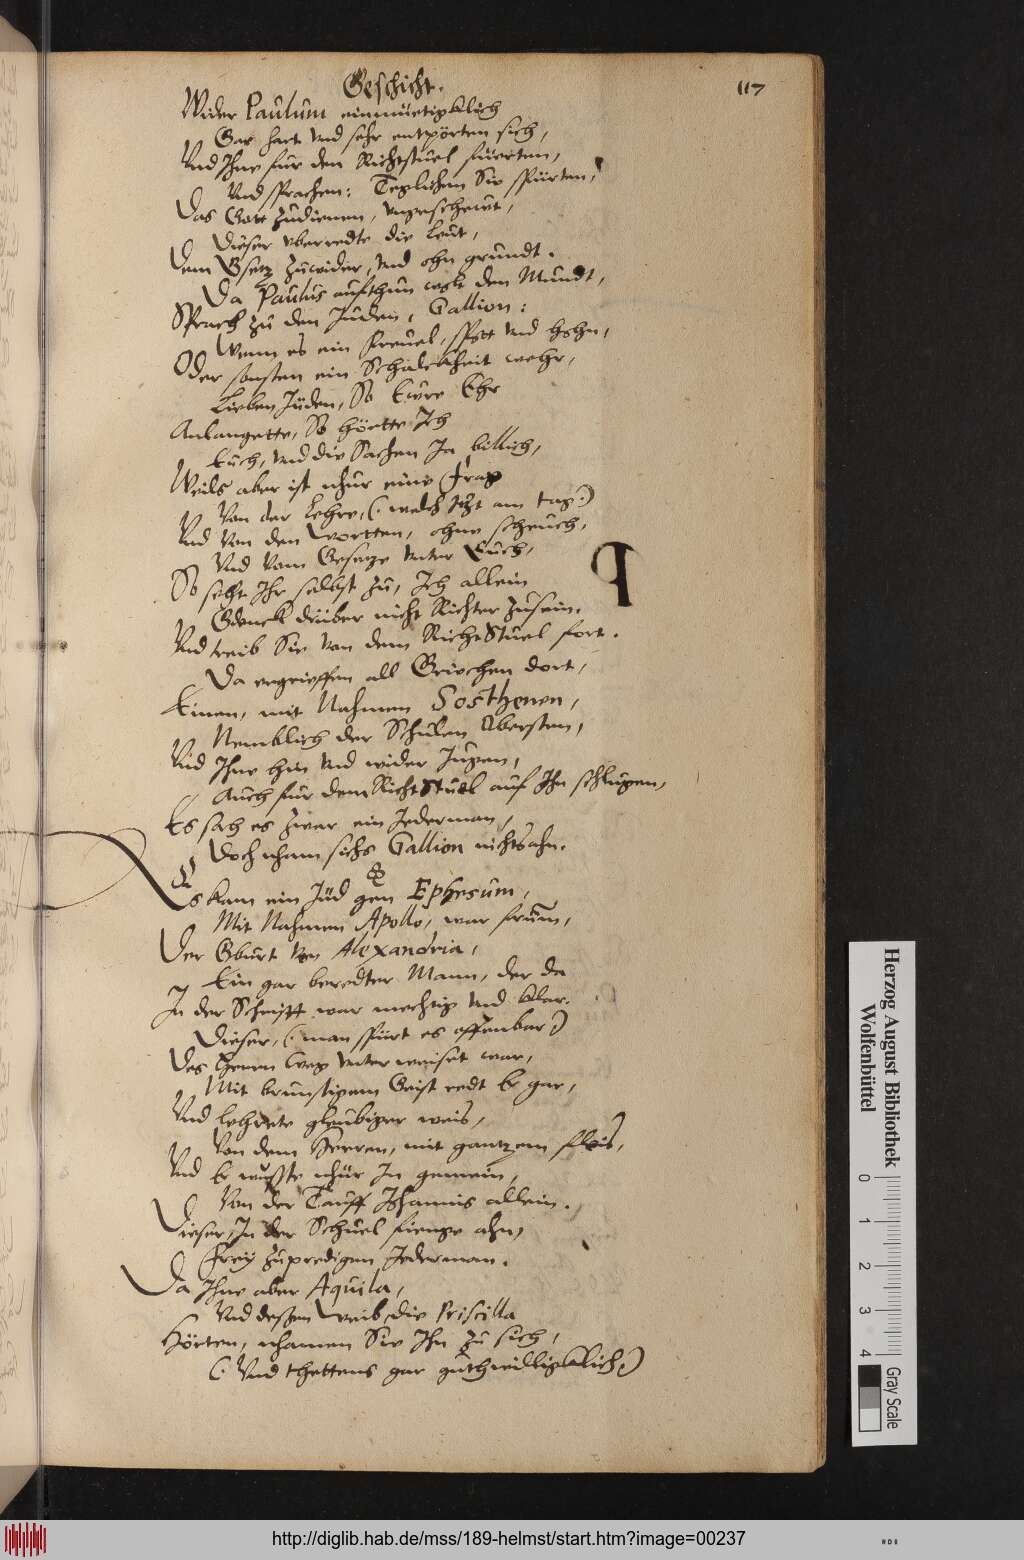 Geschicht.
117
Wider Paulum einmüetigklich
Gar hart Vnd sehr entpörten sich,
Vnd Ihne für den Richtstuel füerten,
Vnd sprachen: Teglichen Sie spürten,
Das Gott zudienen, vngescheut,
Dieser vberredte die Leut,
Dem Gsetz zuwider, Vnd ohn grundt.
Da Paulus aufthun wolt den Mundt,
Sprach zu den Juden, Gallion:
Wenn es ein freuel, spott Vnd hohn,
Oder sonsten ein Schalckheit wehr,
Lieben Jüden, So Ewre Ehr
Anlangette, So hörtte Ich
Euch, Vnd die Sachen Ja billich,
Weils aber ist nhur eine Frag
Von der Lehre, (welch itzt am tag)
Vnd Von den wortten, ohne scheuch,
Vnd Vom Gesetze Vnter Euch,
So seht Ihr selbst zu, Ich allein
Gdenck drüber nicht Richter zusein.
Vnd treib Sie Von dem RichtStuel fort.
Da ergrieffen all Griechen dort,
Einen, mit Nahmen Sosthenen,
Nemblich der Schulen Obersten,
Vnd Ihne hin Vnd wider Jugen,
Auch für dem RichtStuel auf Ihn schlugen,
Es sah es zwar ein Jederman,
Doch nham sichs Gallion nichts ahn.
Es kam ein Jüd gen Ephesum,
Mit Nahmen Apollo, war frum,
Der Gburt Von Alexandria,
Ein gar beredter Mann, der da
In der Schrifft war mechtig Vnd klar.
Dieser, (man spürt es offenbar)
Des Herrn Weg Vnterweiset war,
Mit brünstigem Geist redt Er gar,
Vnd lehrete gleubiger weis,
Von dem Herren, mit gantzem fleis,
Vnd Er wusste nhür In gemein,
Von der Tauff Johannis allein.
Dieser, In der Schuel fienge ahn,
Frey zupredigen Jederman.
Da Ihne aber Aquila,
Vnd dessen Weib die Priscilla
Hörten, nhamen Sie Ihn zu sich,
(Vnd thettens gar guthwilligklich)
Herzog August Bibliothek
Wolfenbüttel
0 1 2 3 4
Gray Scale
http://diglib.hab.de/mss/189-helmst/start.htm?image=00237